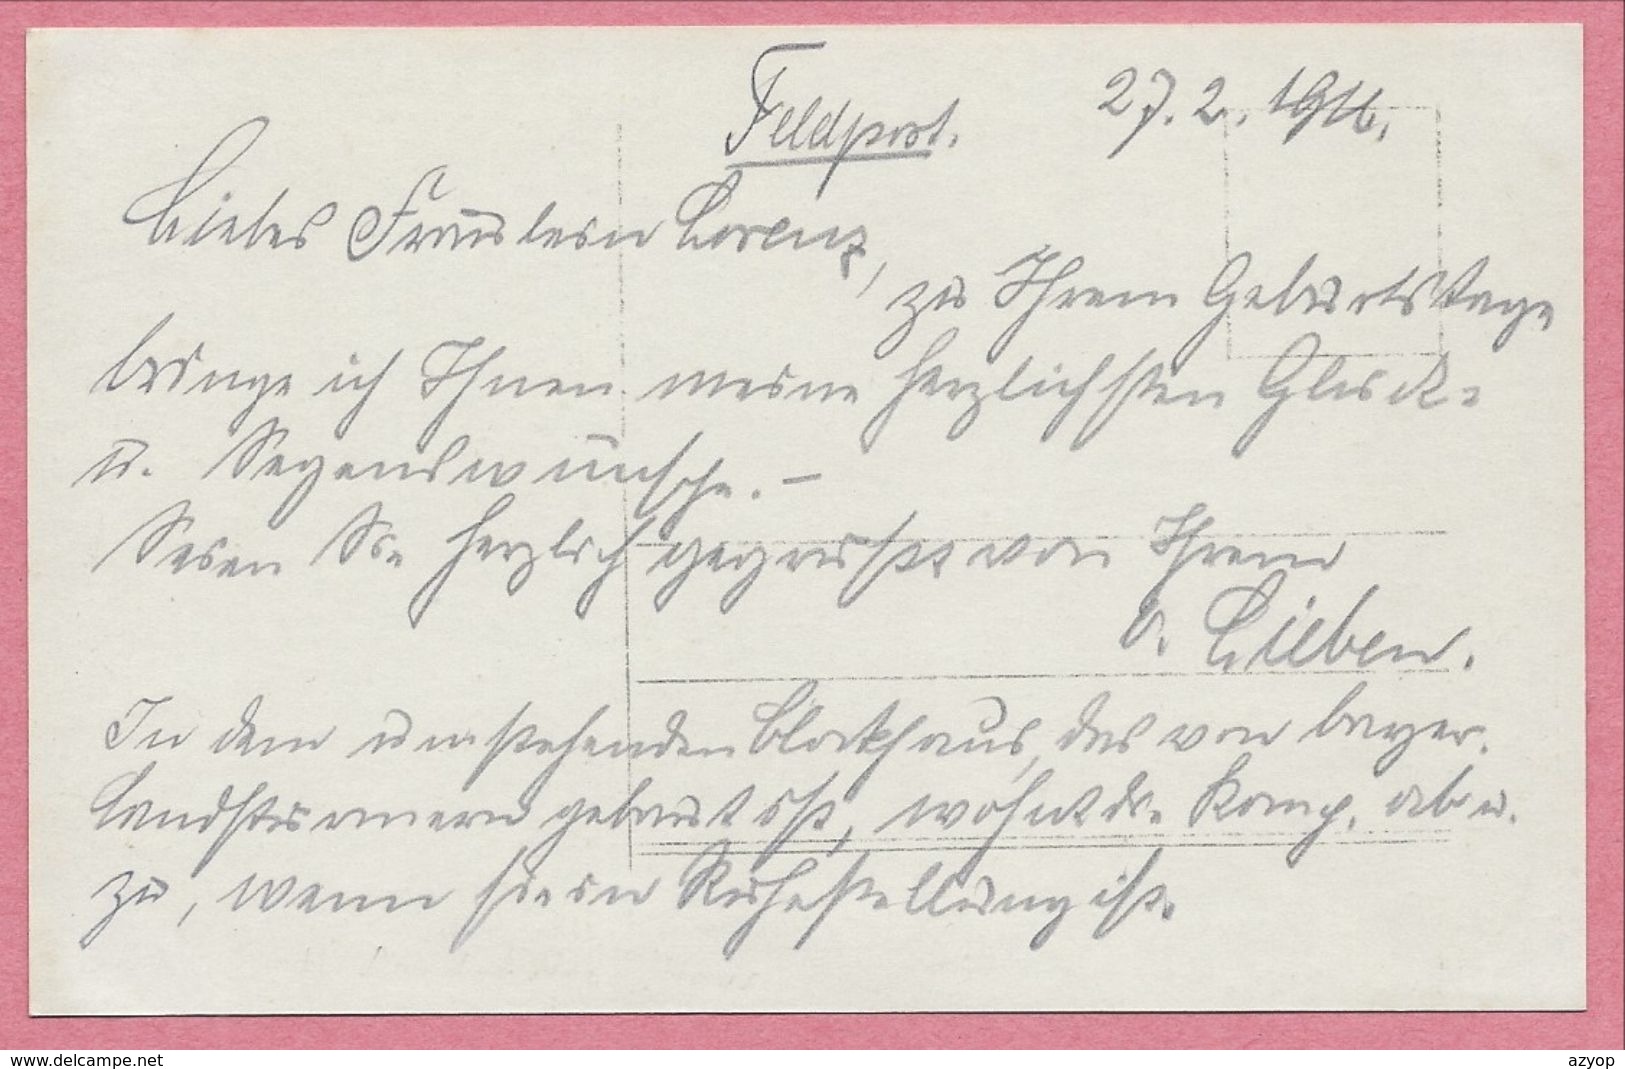 Feldpost.
27.2.1916.
Liebes Fräulein Lorenz,
zu Ihrem Geburtstage
bringe ich Ihnen meine herzlichsten Glück-
u. Segenswünsche. –
Seien Sie herzlich gegrüßt von Ihrem
v. Lieben.
In dem umstehenden Blockhaus, das von bayer.
Landstürmern gebaut ist, wohnt die Komp. ab u.
zu, wenn sie in Ruhestellung ist.
www.delcampe.net
azyop